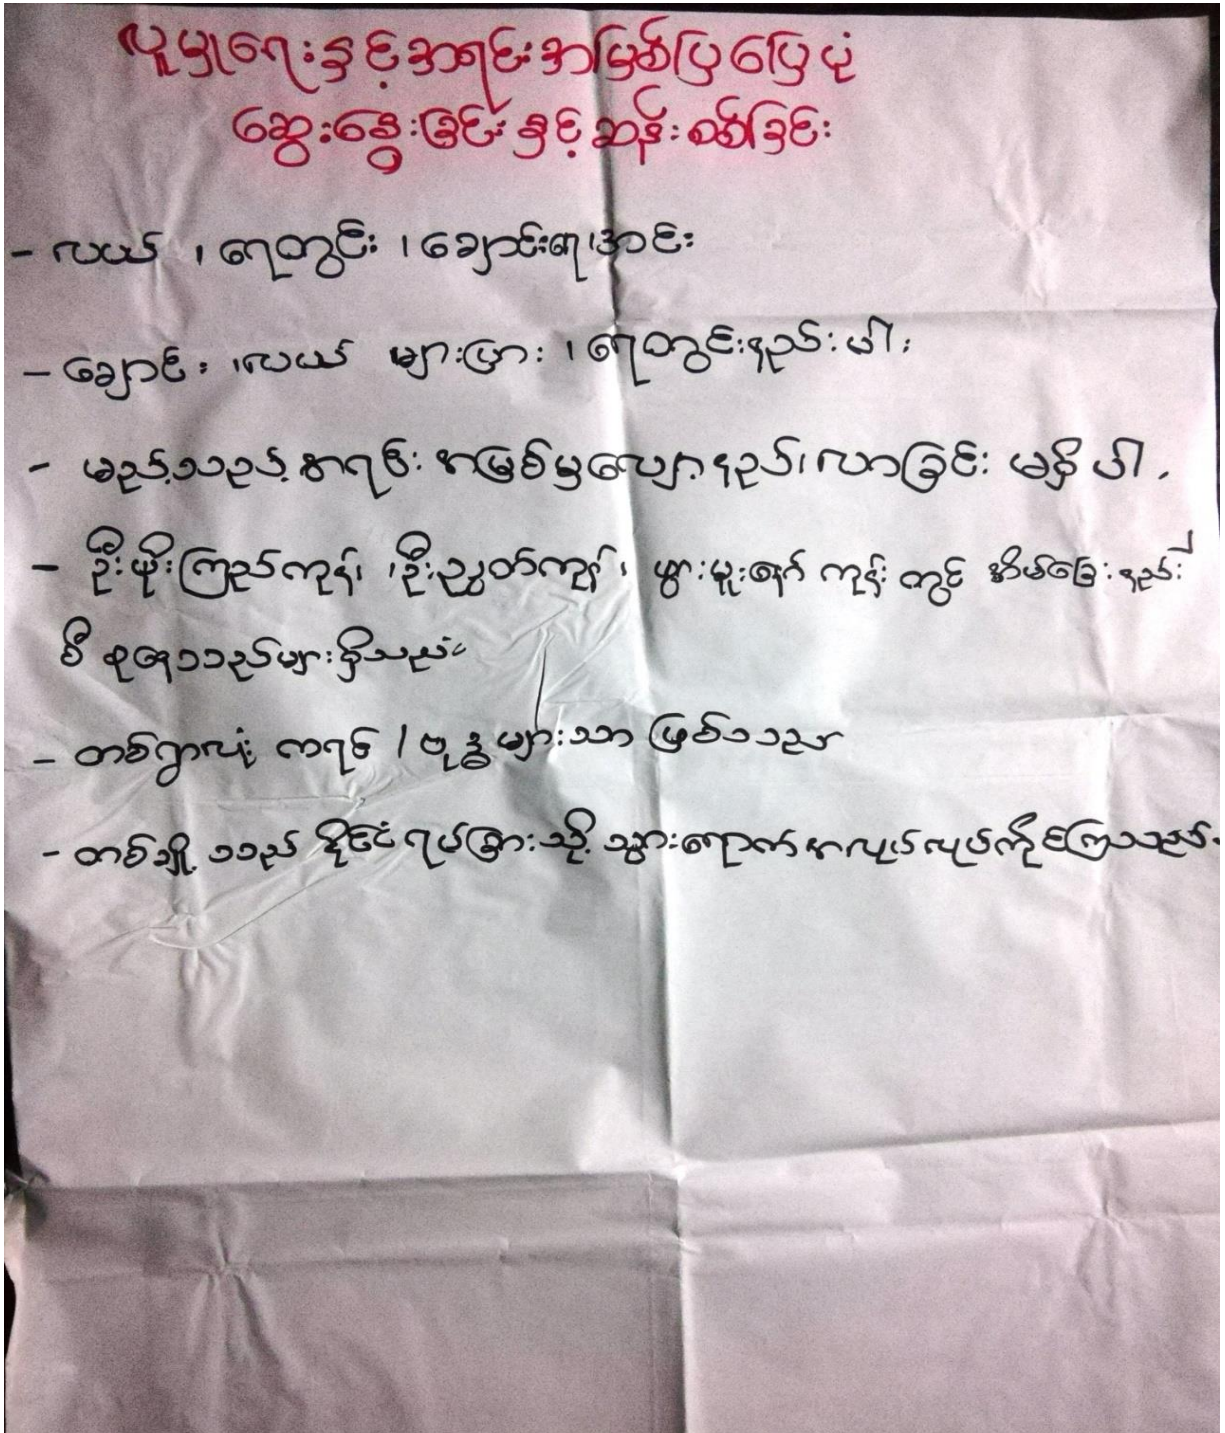 လူမှုရေးနှင့်အရင်းအမြစ်ပြမြေပုံ
ဆွေးနွေးခြင်းနှင့်ဆန်းစစ်ခြင်း
- လယ် ၊ ရေတွင်း ၊ ချောင်းရေ၊အင်း
- ချောင်း ၊လယ် များပြား ၊ ရေတွင်းနည်းပါး
- မည်သည့်အရင်းအမြစ်မှလျော့နည်းလာခြင်း မရှိပါ.
- ဦးဖိုးကြည်ကုန်း ၊ဦးညွတ်ကုန်း၊ ကုန်းတွင် အိမ်ခြေနည်း
စီ စုနေသည်များရှိသည်။
- တစ်ရွာလုံး ကရင် / ဗုဒ္ဓများသာ ဖြစ်သည်
- တစ်ချို့သည် နိုင်ငံရပ်ခြားသို့ သွားရောက်အလုပ်လုပ်ကိုင်ကြသည်.